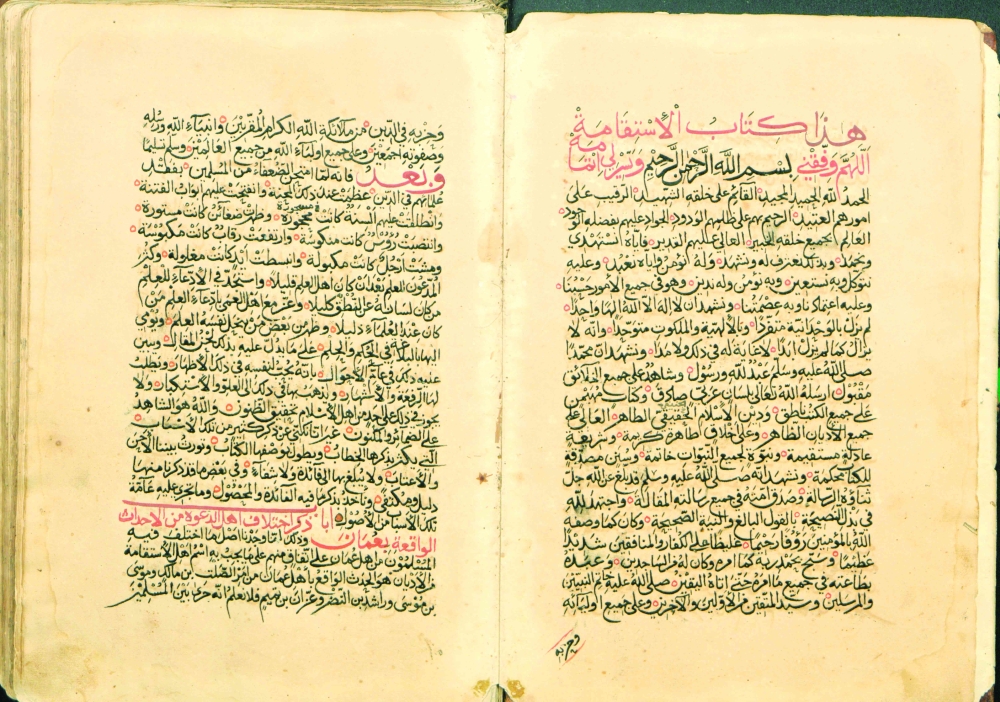 هذا كتاب الاستقامة
اللهم وفقني لاتمامه بسم الله الرحمن الرحيم ويسر لي
الحمد لله الحميد المجيد القائم على خلقه الشهيد الرقيب على
امورهم العتيد الرحيم بهم على ظلمهم الودود الجواد عليهم بفضله
العالم بجميع خلقه الخبير العالي عليهم القدير فاياه نستهدي
ونحمد وبذلك نعترف له ونشهد وله نؤمن واياه نعبد وعليه
نتوكل وبه نستعين وبه نؤمن وله ندين وهو في جميع الامور حسبنا
وعليه اعتمادنا وبه عصمتنا ونشهد ان لا اله الا الله الها واحدا
لم يزل بالوحدانية متفردا وبالالهية والملكوت متوحدا وانه لا
يزال كما لم يزل ابدا لا غاية له في ذلك ولا مدا ونشهد ان محمدا
صلى الله عليه وسلم عبد لله ورسول وشاهد على جميع الخلائق
مقبول ارسله الله تعالى بلسان عربي صادق وكتاب مهيمن
على جميع الكتب ناطق ودين الاسلام الحقيقي الطاهر العالي على
جميع الاديان الظاهر وعلى اخلاق طاهرة كريمة وشريعة
عادلة مستقيمة ونبوة لجميع النبوات خاتمة وسنن مصدقة
للكتاب محكمة ونشهد انه صلى الله عليه وسلم قد بلغ عن الله جل
ثناؤه الرسالة وصدق امته في جميع رسالته المقالة واجتهد لله
في بذل النصيحة بالقول البالغ والنية الصحيحة وكان كما وصفه
الله بالمؤمنين رؤوفا رحيما غليظا على الكفار والمنافقين شديدا
عظيما وسبح بحمد ربه كما امره وكان له من الساجدين وعبده
بطاعته في جميع ما امره حتى اتاه اليقين صلى الله عليه خاتم النبيين
والمرسلين وسيد المتقين من الاولين والآخرين وعلى جميع اوليائه
وحزبه
وحزبه في الدين من ملائكة الله الكرام المقربين وانبياء الله ورسله
وصفوته اجمعين وعلى جميع اولياء الله من جميع العالمين وسلم تسليما
وبعد فانه لما امتحن الضعفاء من المسلمين بفقد
علمائهم في الدين عظمت عند ذلك المحنة وانفتحت عليهم ابواب الفتنة
وانطلقت عليهم السنة كانت محجورة وظهرت ضغائن كانت مستورة
وانتصبت رؤوس كانت منكوسة وارتفعت رقاب كانت مكبوسة
ومشت ارجل كانت مكبولة وانبسطت ايد كانت مغلولة وكثر
المدعون العلم بعد ان كان اهل العلم قليلا واستنجد في الادعاء للعلم
من كان لسانه عن النطق كليلا وعز مع اهل العمى بادعاء العلم من
كان عند العلماء ذليلا وظهر من بعض من ينحل نفسه العلم ونودي
اليه بالبلاغة في الحكم والحلم على ما يدل عليه بذلك لحن المقال وتبين
عليه ذلك في عامة الاحوال بانه يحب لنفسه في ذلك الاظهار ويطلب
لها الرفعة والاشتهار ويذهب بها في ذلك الى العلو والاستكبار ولا
يجوز في ذلك على احد من اهل الاسلام تحقيق الظنون والله هو الشاهد
على الضمائر والمكنون غير انا تكنى عن ذكر كثير من تلك الاسباب
التي يكثر بذكرها الخطاب ويطول بوصفها الكتاب وتورث بيننا الاحن
والاعتاب ولا يبلغ بها الفائدة ولا شفاء وفي بعض ما قد ذكرناه منها
دليل ومكتفى وناخذ بذكر ما فيه الفائدة والمحصول وما تجري عليه عامة
تلك الاسباب من الاصول باب ذكر اختلاف اهل الدعوة من الاحداث
الواقعة بعمان وذلك انا وجدنا اصل ما اختلف فيه
المسلمون من اهل عمان على اتفاق منهم على ما يجب به اسم اهل الاستقامة
من الاديان هو الحدث الواقع باهل عمان من امر الصلت بن مالك وموسى
بن موسى وراشد بن النضر وعزان بن تميم فلا نعلم انه جرى بين المسلمين